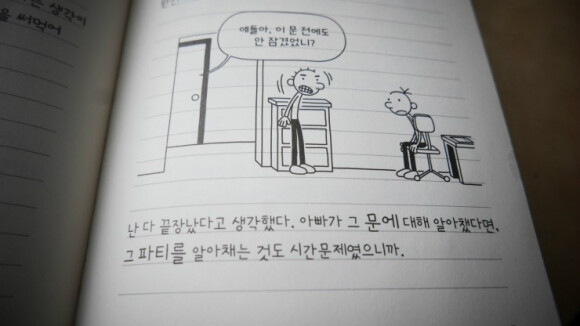 는 생각이
을 써먹어
얘들아, 이 문 전에도
안 잠겼었니?
난 다 끝장났다고 생각했다. 아빠가 그 문에 대해 알아챘다면,
그 파티를 알아채는 것도 시간문제였으니까.